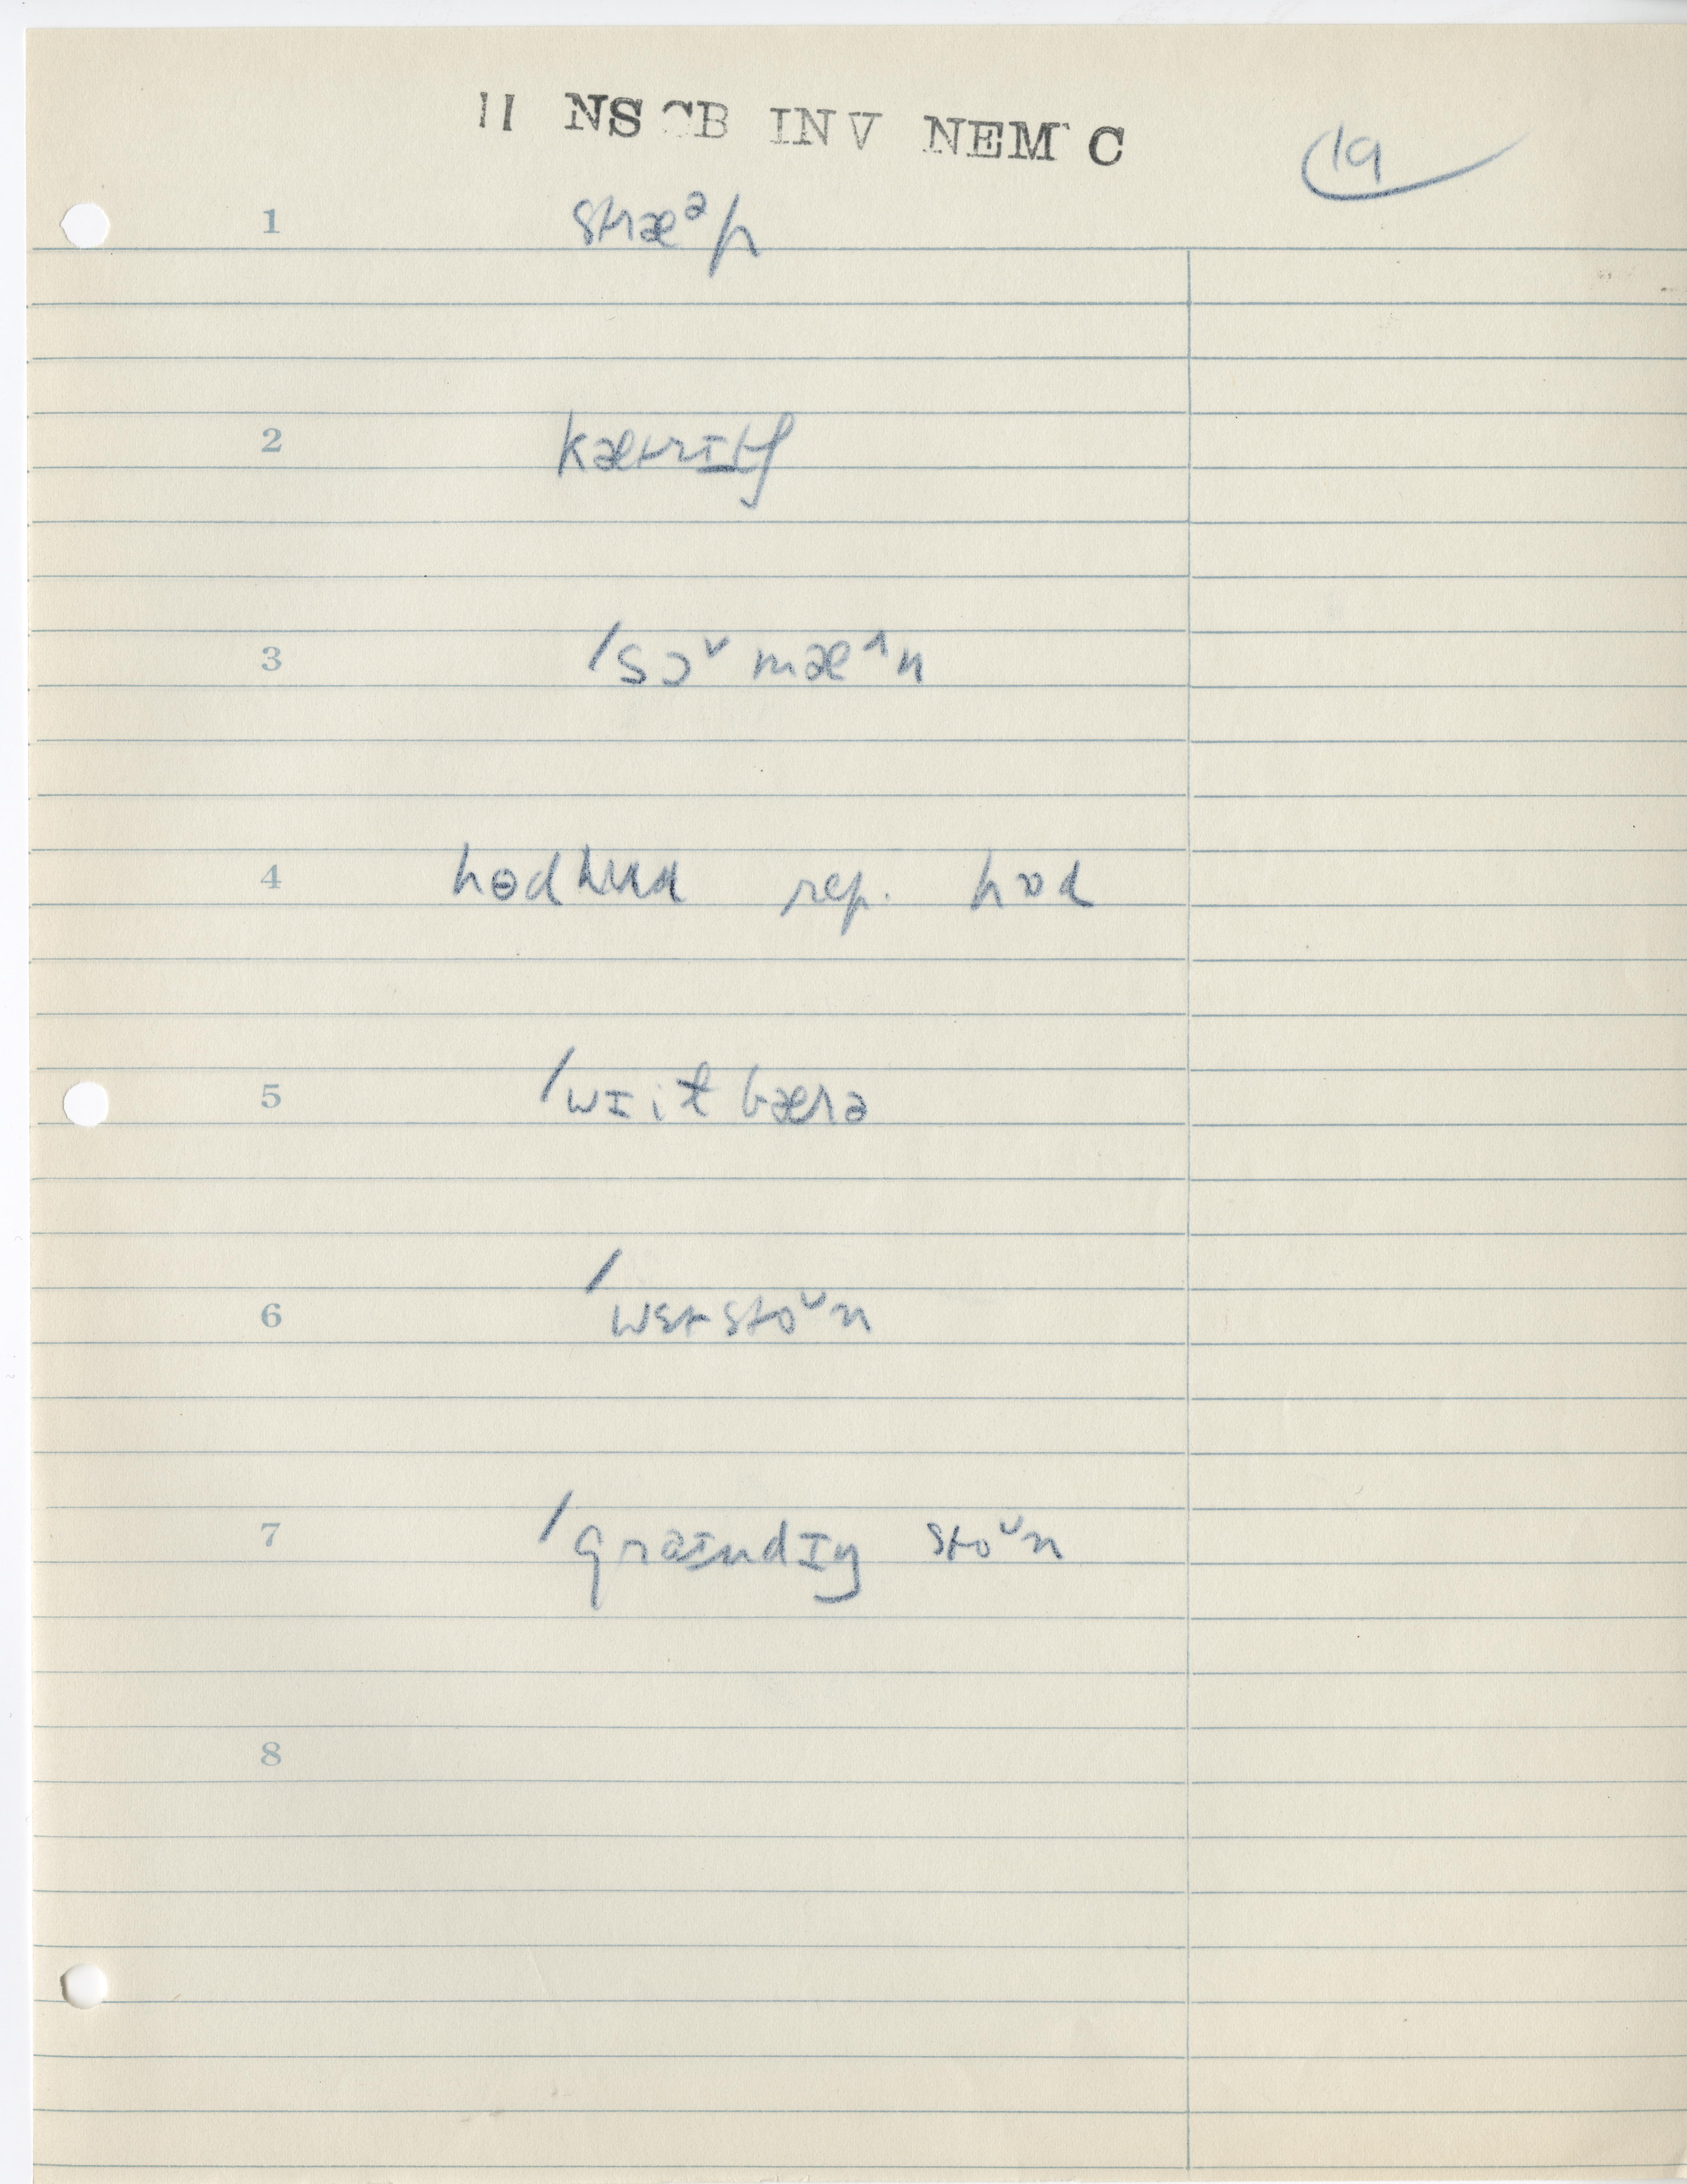 II NS CB INV NEM C
19
1 stræᵊp
2 kætrɪtʃ
3 /sɔᵛ mæ^n
4 hɵd rep. hɒd
5 /wɪit bærə
6 /wɛt stoᵛn
7 /graɪndɪŋ stoᵛn
8